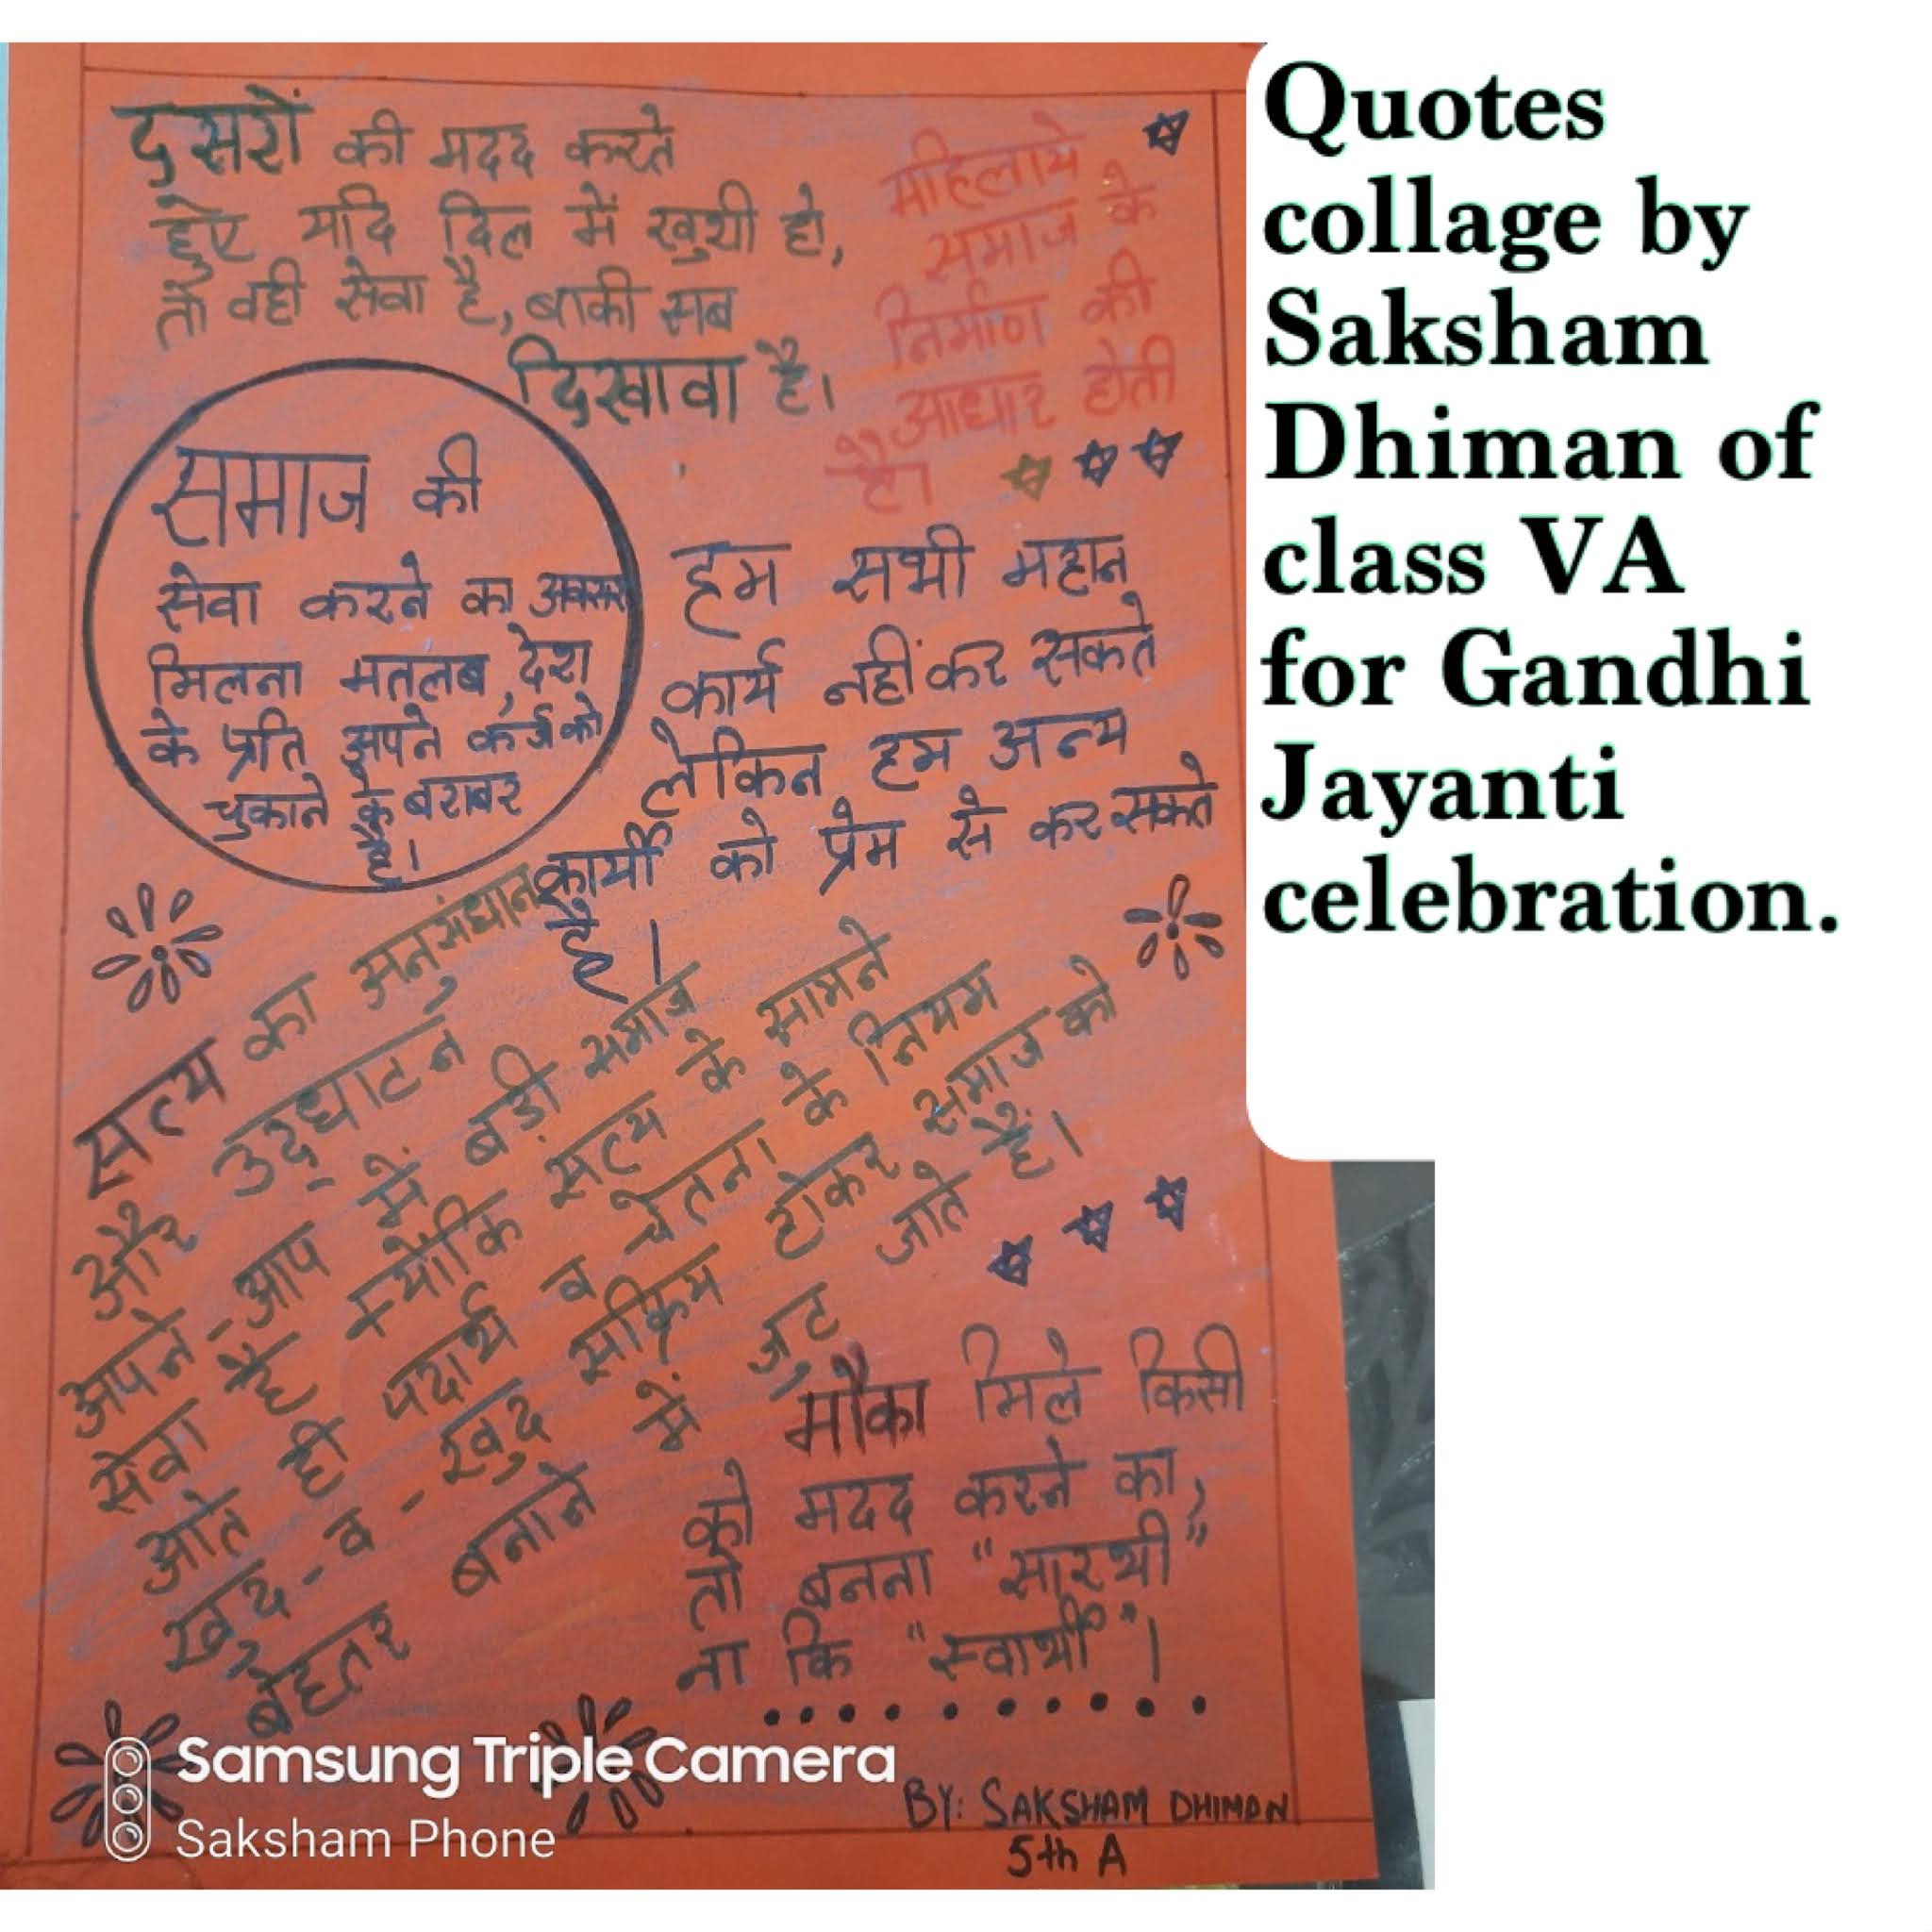 दुसरों की मदद करते
हुए यदि दिल में खुशी हो,
तो वही सेवा है, बाकी सब
दिखावा है।
महिलाये
समाज के
निर्माण की
आधार होती
है।
समाज की
सेवा करने का अवसर
मिलना मतलब, देश
के प्रति अपने कर्ज को
चुकाने के बराबर
है।
हम सभी महान
कार्य नहीं कर सकते
लेकिन हम अन्य
कार्यों को प्रेम से कर सकते
है।
सत्य का अनुसंधान
और उद्घाटन
अपने-आप में बड़ी समाज
सेवा है क्योंकि सत्य के सामने
आते ही पदार्थ व चेतना के नियम
खुद-ब-खुद सक्रिय होकर समाज को
बेहतर बनाने में जुट जाते हैं।
मौका मिले किसी
को मदद करने का,
तो बनना "सारथी"
ना कि "स्वार्थी"।
BY: SAKSHAM DHIMAN
5th A
Samsung Triple Camera
Saksham Phone
Quotes
collage by
Saksham
Dhiman of
class VA
for Gandhi
Jayanti
celebration.